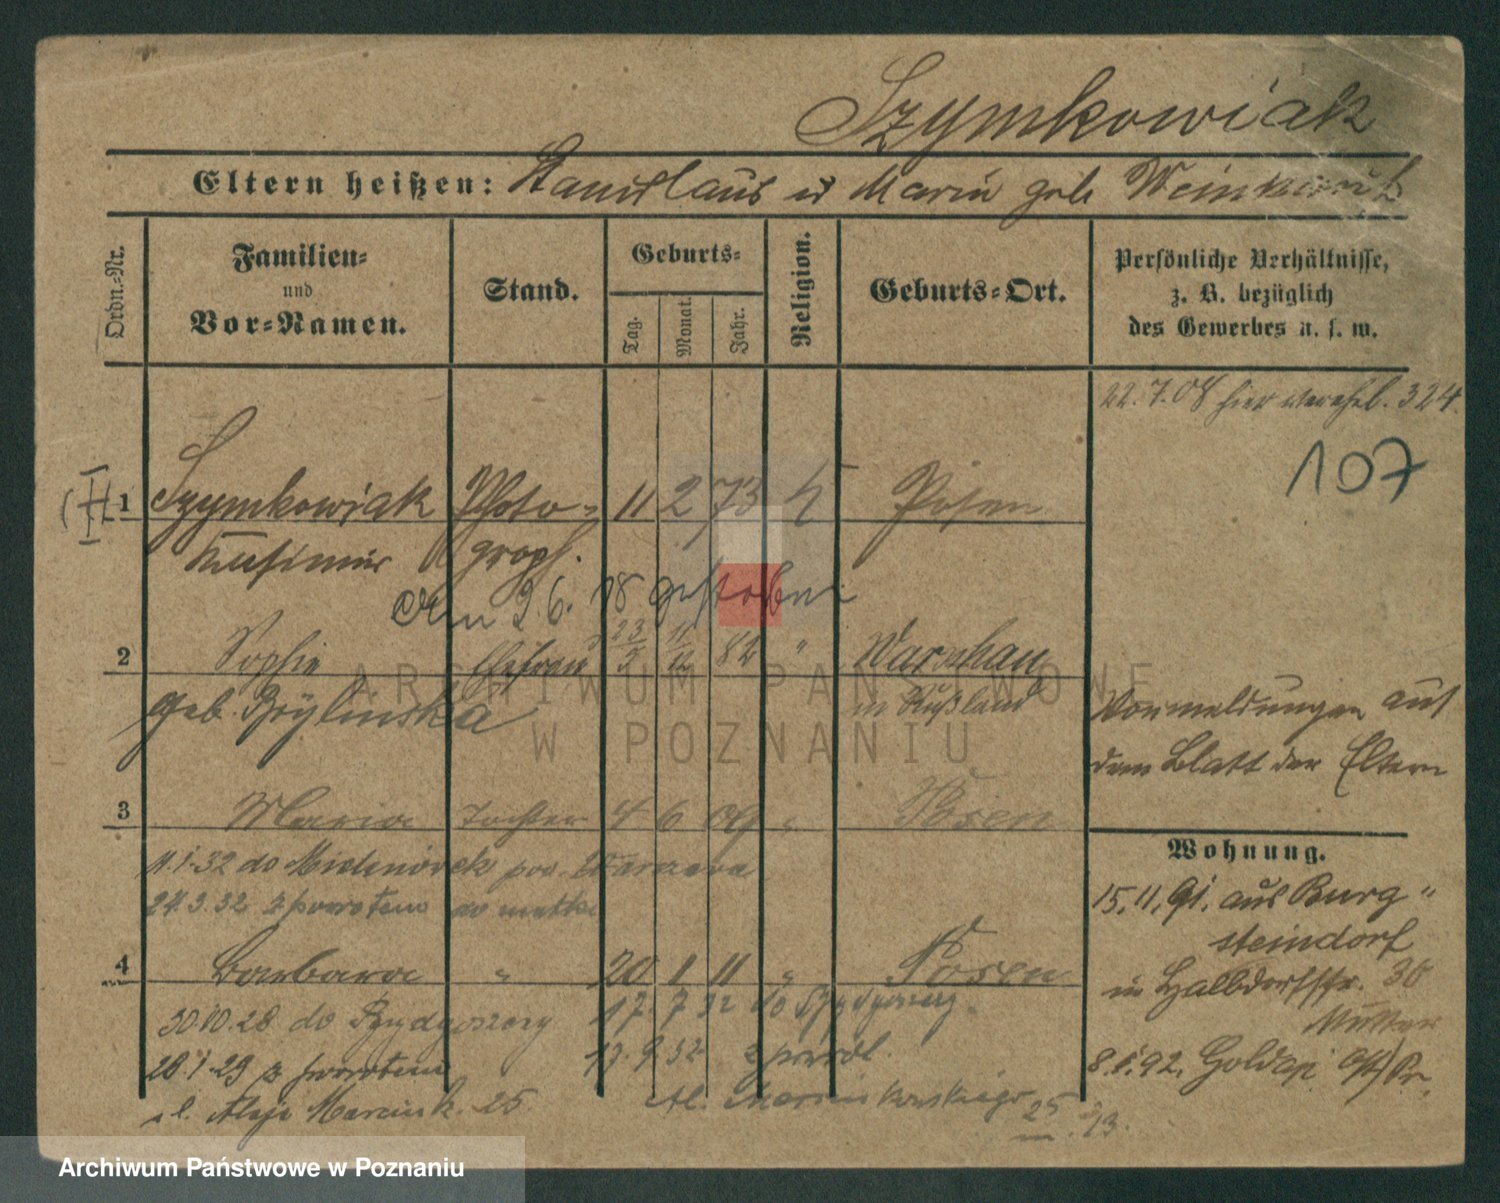 Szymkowiak
Eltern heißen: Stanislaus u Maria geb
Ordn.-Nr.
Familien-
und
Vor-Namen.
Stand.
Geburts-
Tag.
Monat.
Jahr.
Religion.
Geburts-Ort.
Persönliche Verhältnisse,
z. B. bezüglich
des Gewerbes u. s. w.
22.7.08 hier verehel. 324.
107
1 Szymkowiak Photo- 11 2 73 k Posen
Kasimir graph.
am 9.6.18 gestorben
2 Sophie Ehefrau 82 " Warschau
geb. Brylinska in Rußland
Vormeldungen auf
dem Blatt der Eltern
3 Maria Tochter 4 6 09 " Posen
11.1.32 do pow. Warszawa
24.3.32 z powrotem do matki
Wohnung.
15.11.91. aus Burg"
steindorf
in Halbdorfstr. 30
Mutter
8.1.92. Goldap Ost/Pr.
4 Barbara " 20 1 11 " Posen
30.10.28 do Bydgoszczy 17. 7 32 do Bydgoszczy.
28.1.29 z powrotem 17.9.32 z powrot.
ul. Aleje Marcink. 25. Al. Marcinkowskiego 25
m. 23.
ARCHIWUM PAŃSTWOWE
W POZNANIU
Archiwum Państwowe w Poznaniu